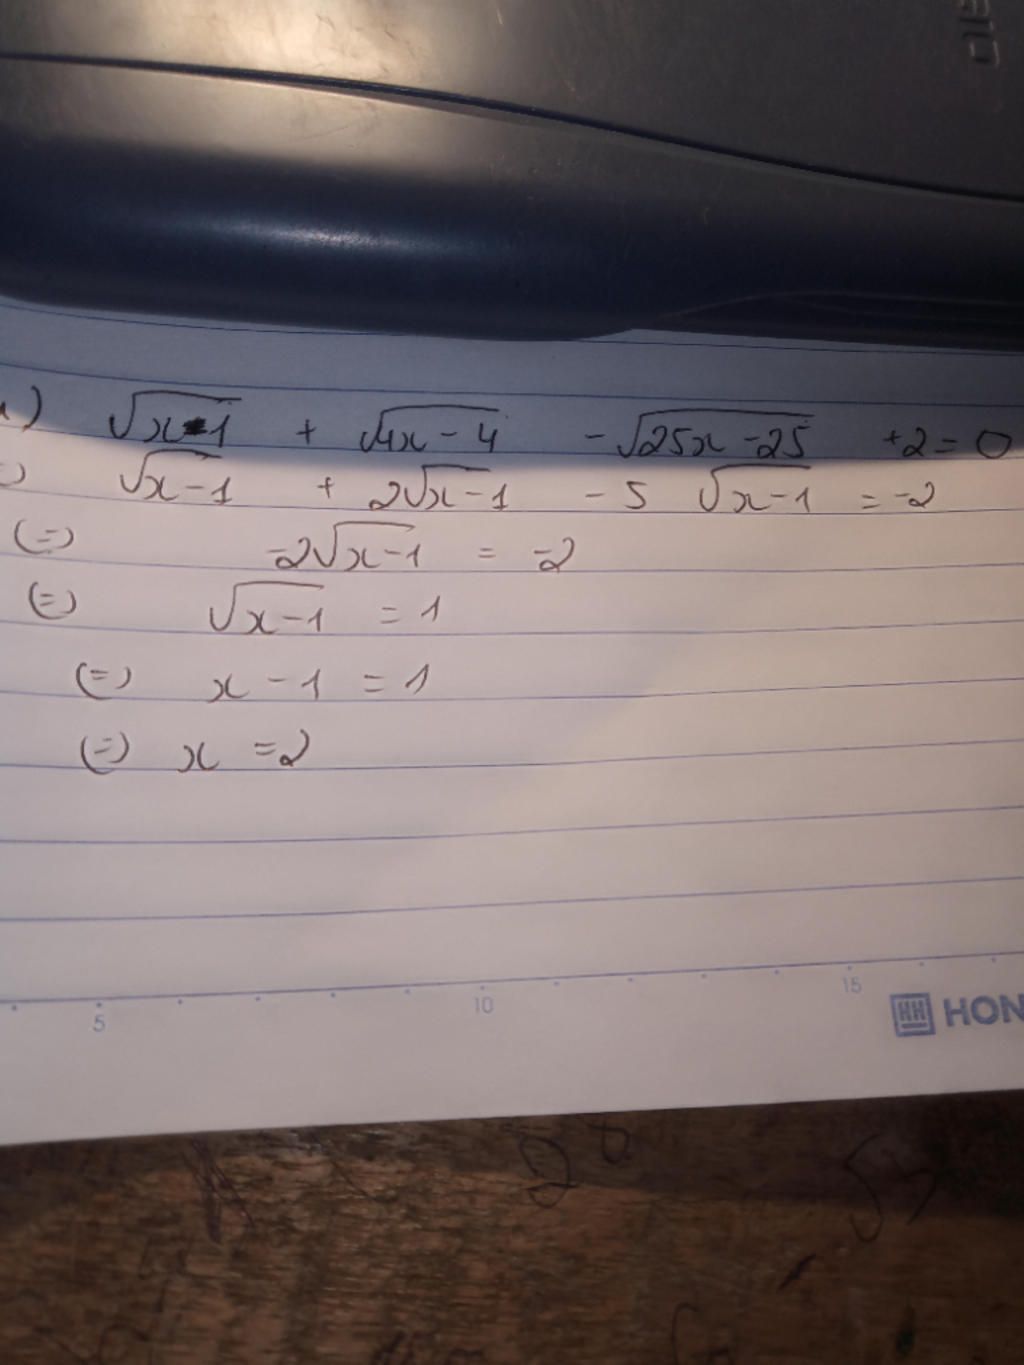 √x-1 + √4x-4 - √25x-25 +2=0
√x-1 + 2√x-1 - 5 √x-1 = -2
(=) -2√x-1 = -2
(=) √x-1 = 1
(=) x-1 = 1
(=) x = 2
5 10 15
HON